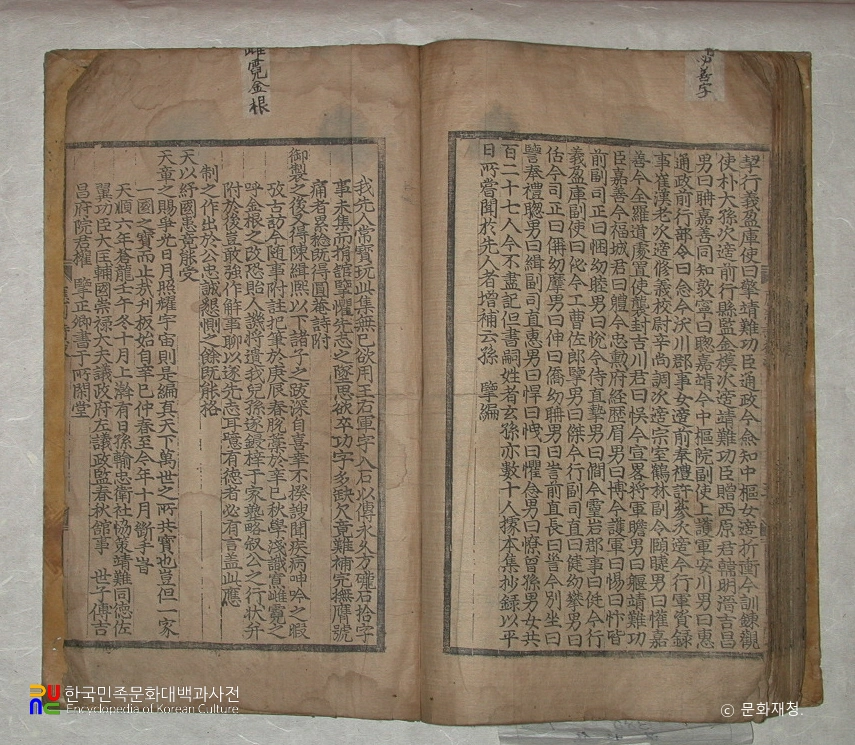 善字
契行義盈庫使曰擎靖難功臣通政今僉知中樞女適折衝今訓鍊觀
使朴大孫次適前行縣監金模次適靖難功臣贈西原君韓明溍吉昌
男曰聃嘉善同知敦寧曰聰嘉靖今中樞院副使上護軍安川男曰惠
通政前行部令曰念今沃川郡事女適前奉禮許 次適今行軍資錄
事崔漢老次適修義校尉辛尚調次適宗室鶴林副令頤 男曰懽嘉
善今全羅道處置使襲封吉川君曰悞今宣畧將軍瞻男曰 靖難功
臣嘉善今福城君曰軆今忠勲府經歷眉男曰愽今護軍曰惕曰忭皆
前副司正曰悃幼睦男曰悅今侍直摯男曰簡今靈岩郡事曰徙今行
義盈庫副使曰佖今工曹佐郎孿男曰傑今行副司直曰健幼攀男曰
估今司正曰傋幼摩男曰伸曰僑幼聃男曰訔前直長曰訔今別坐曰
讐奉禮聰男曰緝副司直惠男曰悍曰愧曰懼念男曰憭曾孫男女共
百二十七人今不盡記但書嗣姓者玄孫亦數十人據本集抄錄以平
日所嘗聞於先人者增補云孫 擥編
雌霓金根
我先人常寶玩此集無已欲用王右軍字入石以傳永久方礲石拾字
事未集而捐舘擥懼先志之墜思欲卒功字多缺欠竟難補完撫膺號
痛者累 旣得圓菴詩附
御製之後又得陳緝熙以下諸子之跋深自喜幸不揆謏聞疾病呻吟之暇
攷古訪今隨事附註把筆於庚辰春脫藁於辛巳秋學淺識寡雌霓之
呼金根之改恐貽人譏將遺我兒孫遂鋟梓于家藝略叙公之行狀幷
附於後豈敢強作解事聊以遂先志耳噫有德者必有言盖此應
制之作出於公忠誠懇惻之餘旣能格
天以紓國患竟能受
天童之賜爭光日月照耀宇宙則是編眞天下萬世之所共寶也豈但一家
一國之寶而止哉刋板始自辛巳仲春至今年十月斷手旹
天順六年蒼龍壬午冬十月上澣有日孫輸忠衛社協策靖難同德佐
翼功臣大匡輔國崇祿大夫議政府左議政監春秋館事 世子傅吉
昌府院君權 擥正卿書于所閑堂
한국민족문화대백과사전
Encyclopedia of Korean Culture
ⓒ 문화재청.